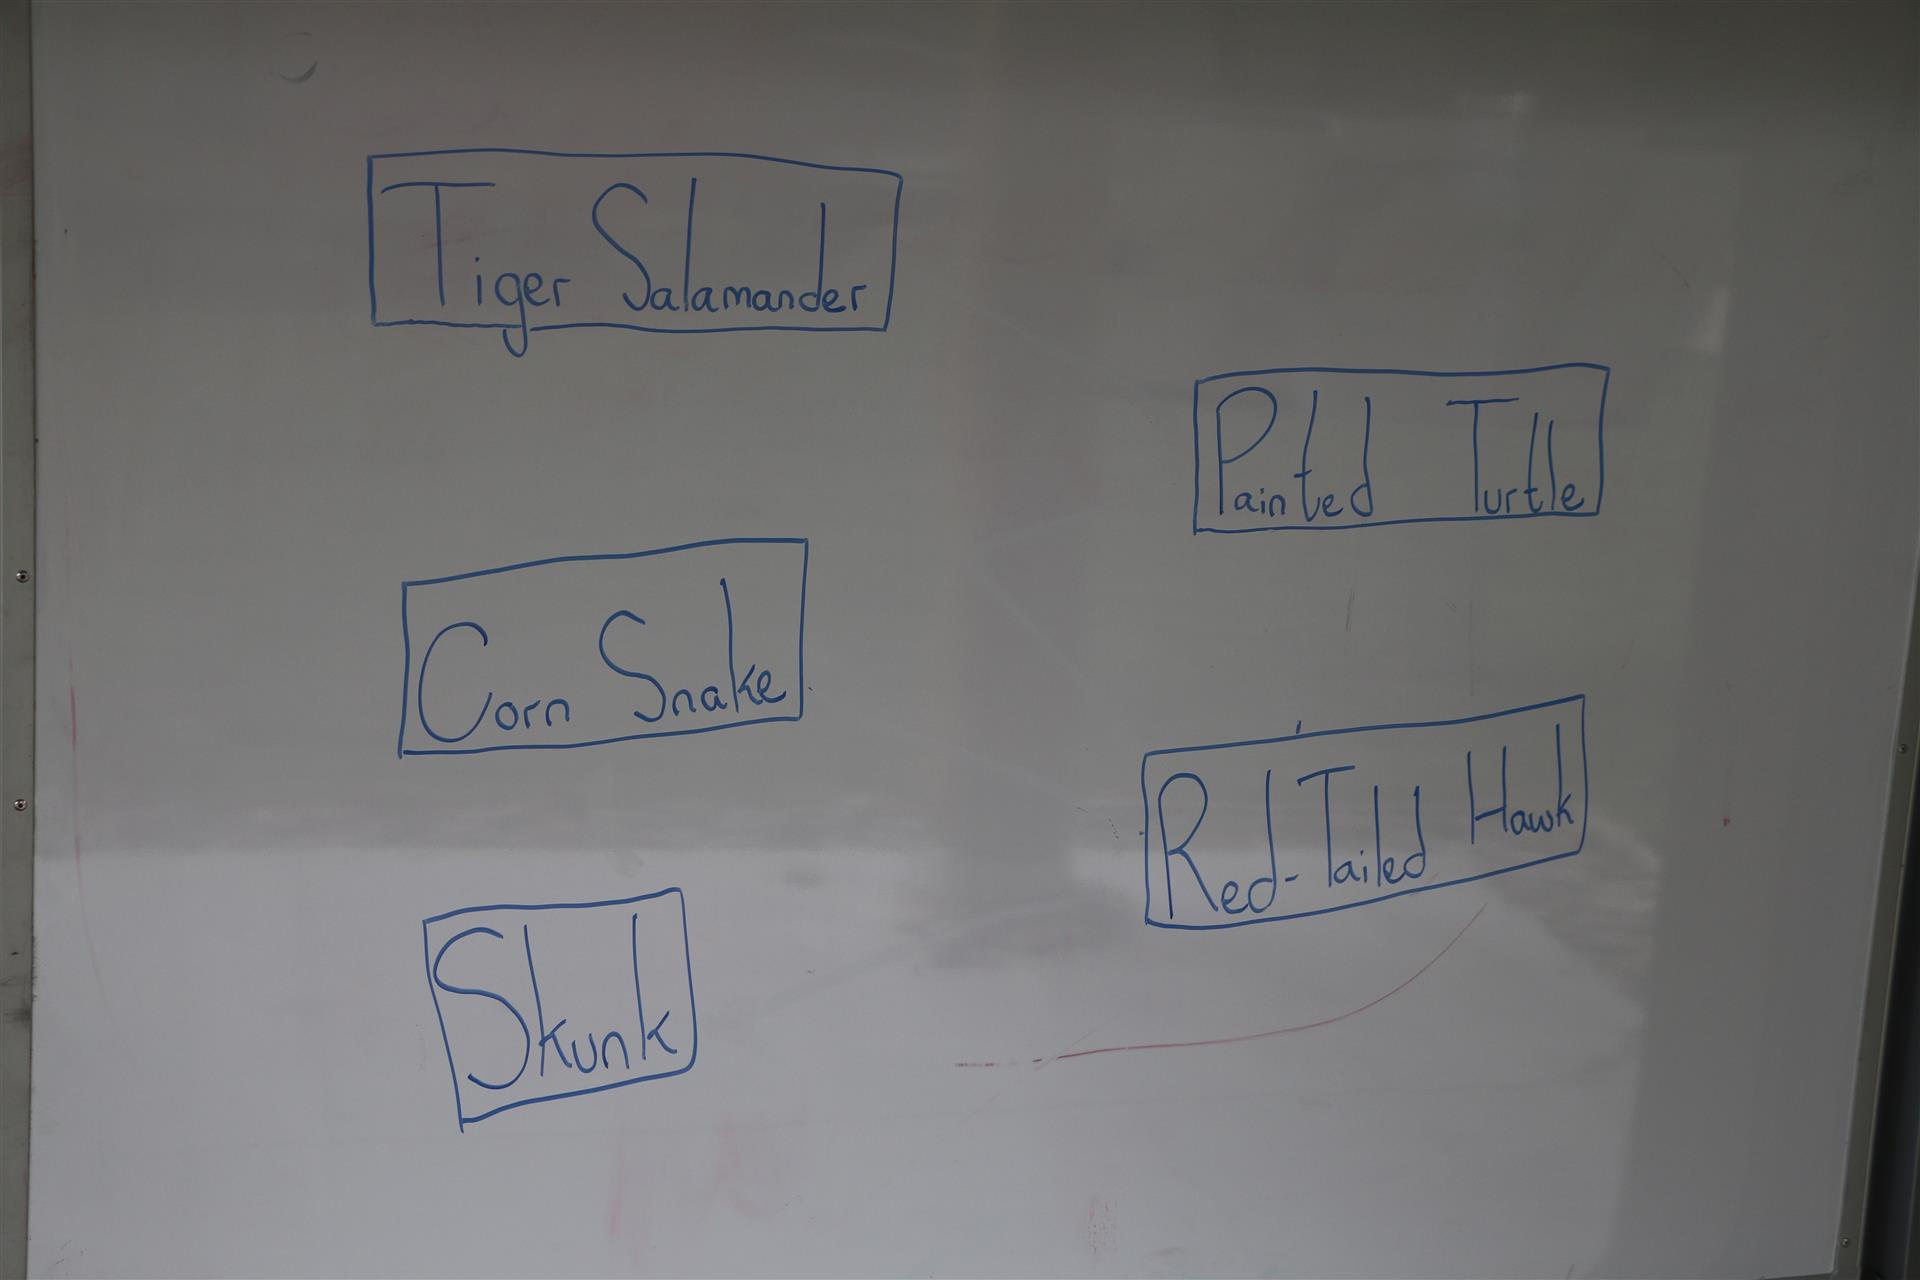 Tiger Salamander
Painted Turtle
Corn Snake
Red-Tailed Hawk
Skunk